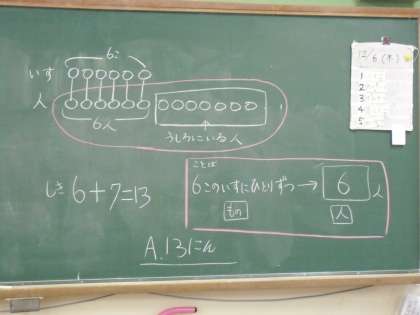 6こ
いす
人
6人
うしろにいる人
しき 6+7=13
ことば
6このいすにひとりずつ→ 6人
もの 人
A.13にん
12/6(木)
1
2
3
4
5